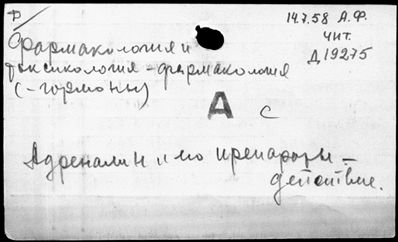 Ф
14.7.58 А.Ф.
чит.
Д19275
Фармакология и
токсикология – фармакология
(– гормоны)
А с
Адреналин и его препараты –
действие.